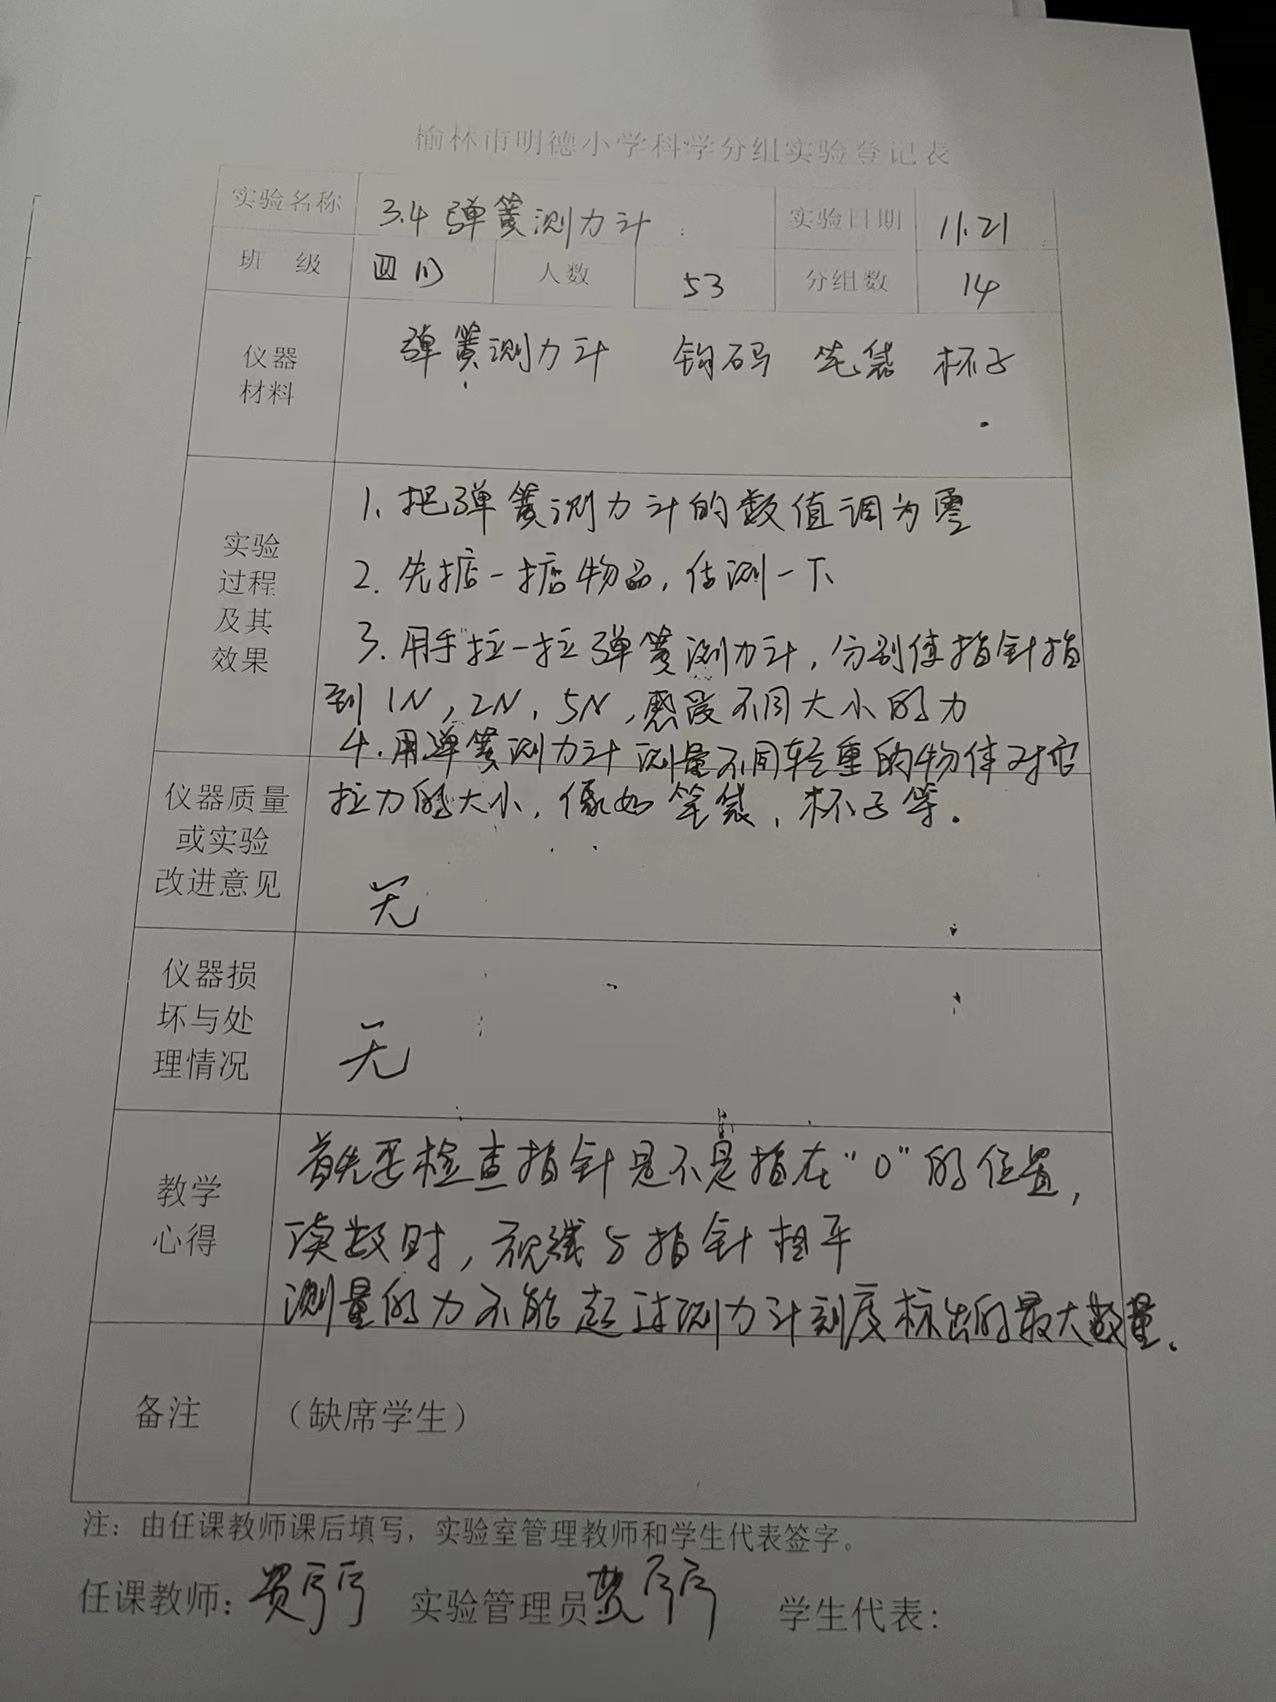 榆林市明德小学科学分组实验登记表
实验名称 3.4 弹簧测力计 实验日期 11.21
班 级 四(1) 人数 53 分组数 14
仪器材料 弹簧测力计 钩码 笔袋 杯子
实验
过程
及其
效果
1. 把弹簧测力计的数值调为零
2. 先掂一掂物品,估测一下
3. 用手拉一拉弹簧测力计,分别使指针指
到1N,2N,5N,感受不同大小的力
4. 用弹簧测力计测量不同轻重的物体对它
拉力的大小,像如笔袋、杯子等.
仪器质量
或实验
改进意见
无
仪器损
坏与处
理情况
无
教学
心得
首先要检查指针是不是指在“0”的位置,
读数时,视线与指针相平
测量的力不能超过测力计刻度标出的最大数量.
备注 (缺席学生)
注:由任课教师课后填写,实验室管理教师和学生代表签字。
任课教师: 实验管理员 学生代表: